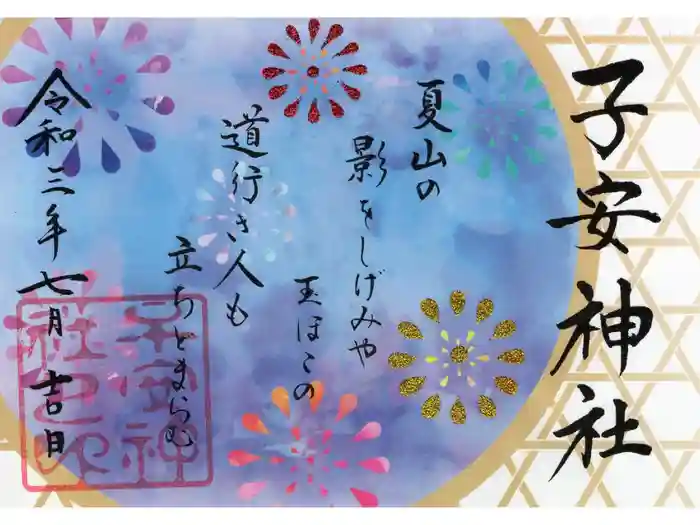 子安神社
夏山の
影をしげみや
玉ほこの
道行き人も
立ちとまらむ
令和三年七月吉日
子安神社之印